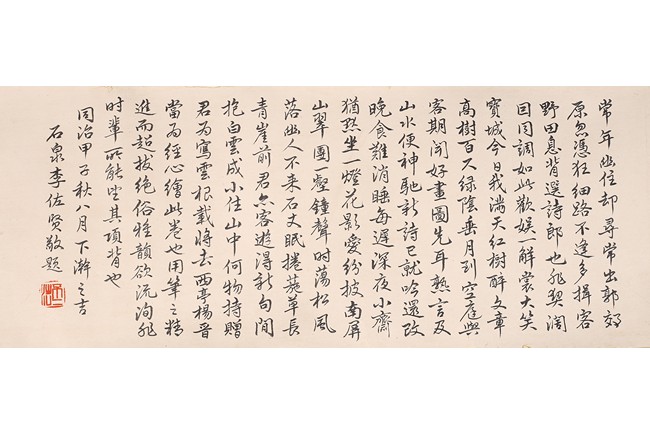 常年幽住却尋常出郭郊
原忽憑狂細路不逢多揖客
野田息背選詩郎也非契闊
因同調如此歡娱一解裳大笑
寶城今日我滿天紅樹醉文章
高樹百尺綠陰垂月到空庭與
客期閒好畫圖先耳熟言及
山水便神馳新詩已就吟還改
晚食難消睡每遲深夜小齋
猶默坐一燈花影愛紛披南屏
山翠圍一壑鐘聲時蕩松風
落幽人不来石丈眠捲葹草長
青崖前君亦客遊得新句閒
抱白雲成小住山中何物持贈
君為寫雲根載將去西亭楊晉
當為經心繪此卷也用筆之精
進而超拔絕俗雅韻欲流洵非
時輩所能望其項背也
同治甲子秋八月下澣之吉
石泉李佐賢敬題